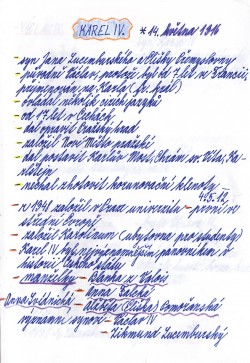 KAREL IV. * 14. května 1316
- syn Jana Lucemburského a Elišky Přemyslovny
- původně Václav, protože byl od 7 let ve Francii
přejmenován na Karla (fr. král)
- ovládal několik cizích jazyků
- od 17 let v Čechách
- dal opravit Pražský hrad
- založil Nové Město pražské
- dal postavit Karlův Most, Chrám sv. Víta, Karlštejn
- nechal zhotovit korunovační klenoty
- v r. 1348 založil v Praze univerzitu - první ve
střední Evropě
- založil Karolinum (ubytovna pro studenty)
- Karel IV. byl nejvýznamnějším panovníkem v
historii Českého státu
- manželky: - Blanka z Valois
- Anna Falcká
Anna Svídnická - Alžběta (Eliška) Pomořanská
- významní synové - Václav IV
- Zikmund Lucemburský